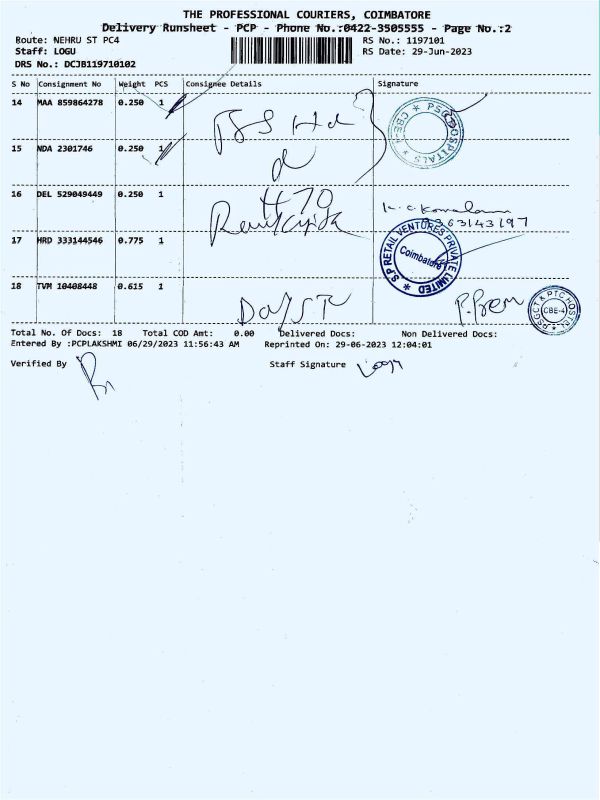 THE PROFESSIONAL COURIERS, COIMBATORE
Delivery Runsheet - PCP - Phone No.:0422-3505555 - Page No.:2
Route: NEHRU ST PC4 RS No.: 1197101
Staff: LOGU RS Date: 29-Jun-2023
DRS No.: DCJB119710102
S No Consignment No Weight PCS Consignee Details Signature
14 MAA 859864278 0.250 1
PSG HOSPITALS * CBE-4 *
15 NDA 2301746 0.250 1
16 DEL 529049449 0.250 1
H70
17 HRD 333144546 0.775 1
S.P RETAIL VENTURES PRIVATE LIMITED *
Coimbatore
18 TVM 10408448 0.615 1
P.Prem
PSGCT & PTC HOSTEL
CBE-4
Total No. Of Docs: 18 Total COD Amt: 0.00 Delivered Docs: Non Delivered Docs:
Entered By :PCPLAKSHMI 06/29/2023 11:56:43 AM Reprinted On: 29-06-2023 12:04:01
Verified By Staff Signature Logu